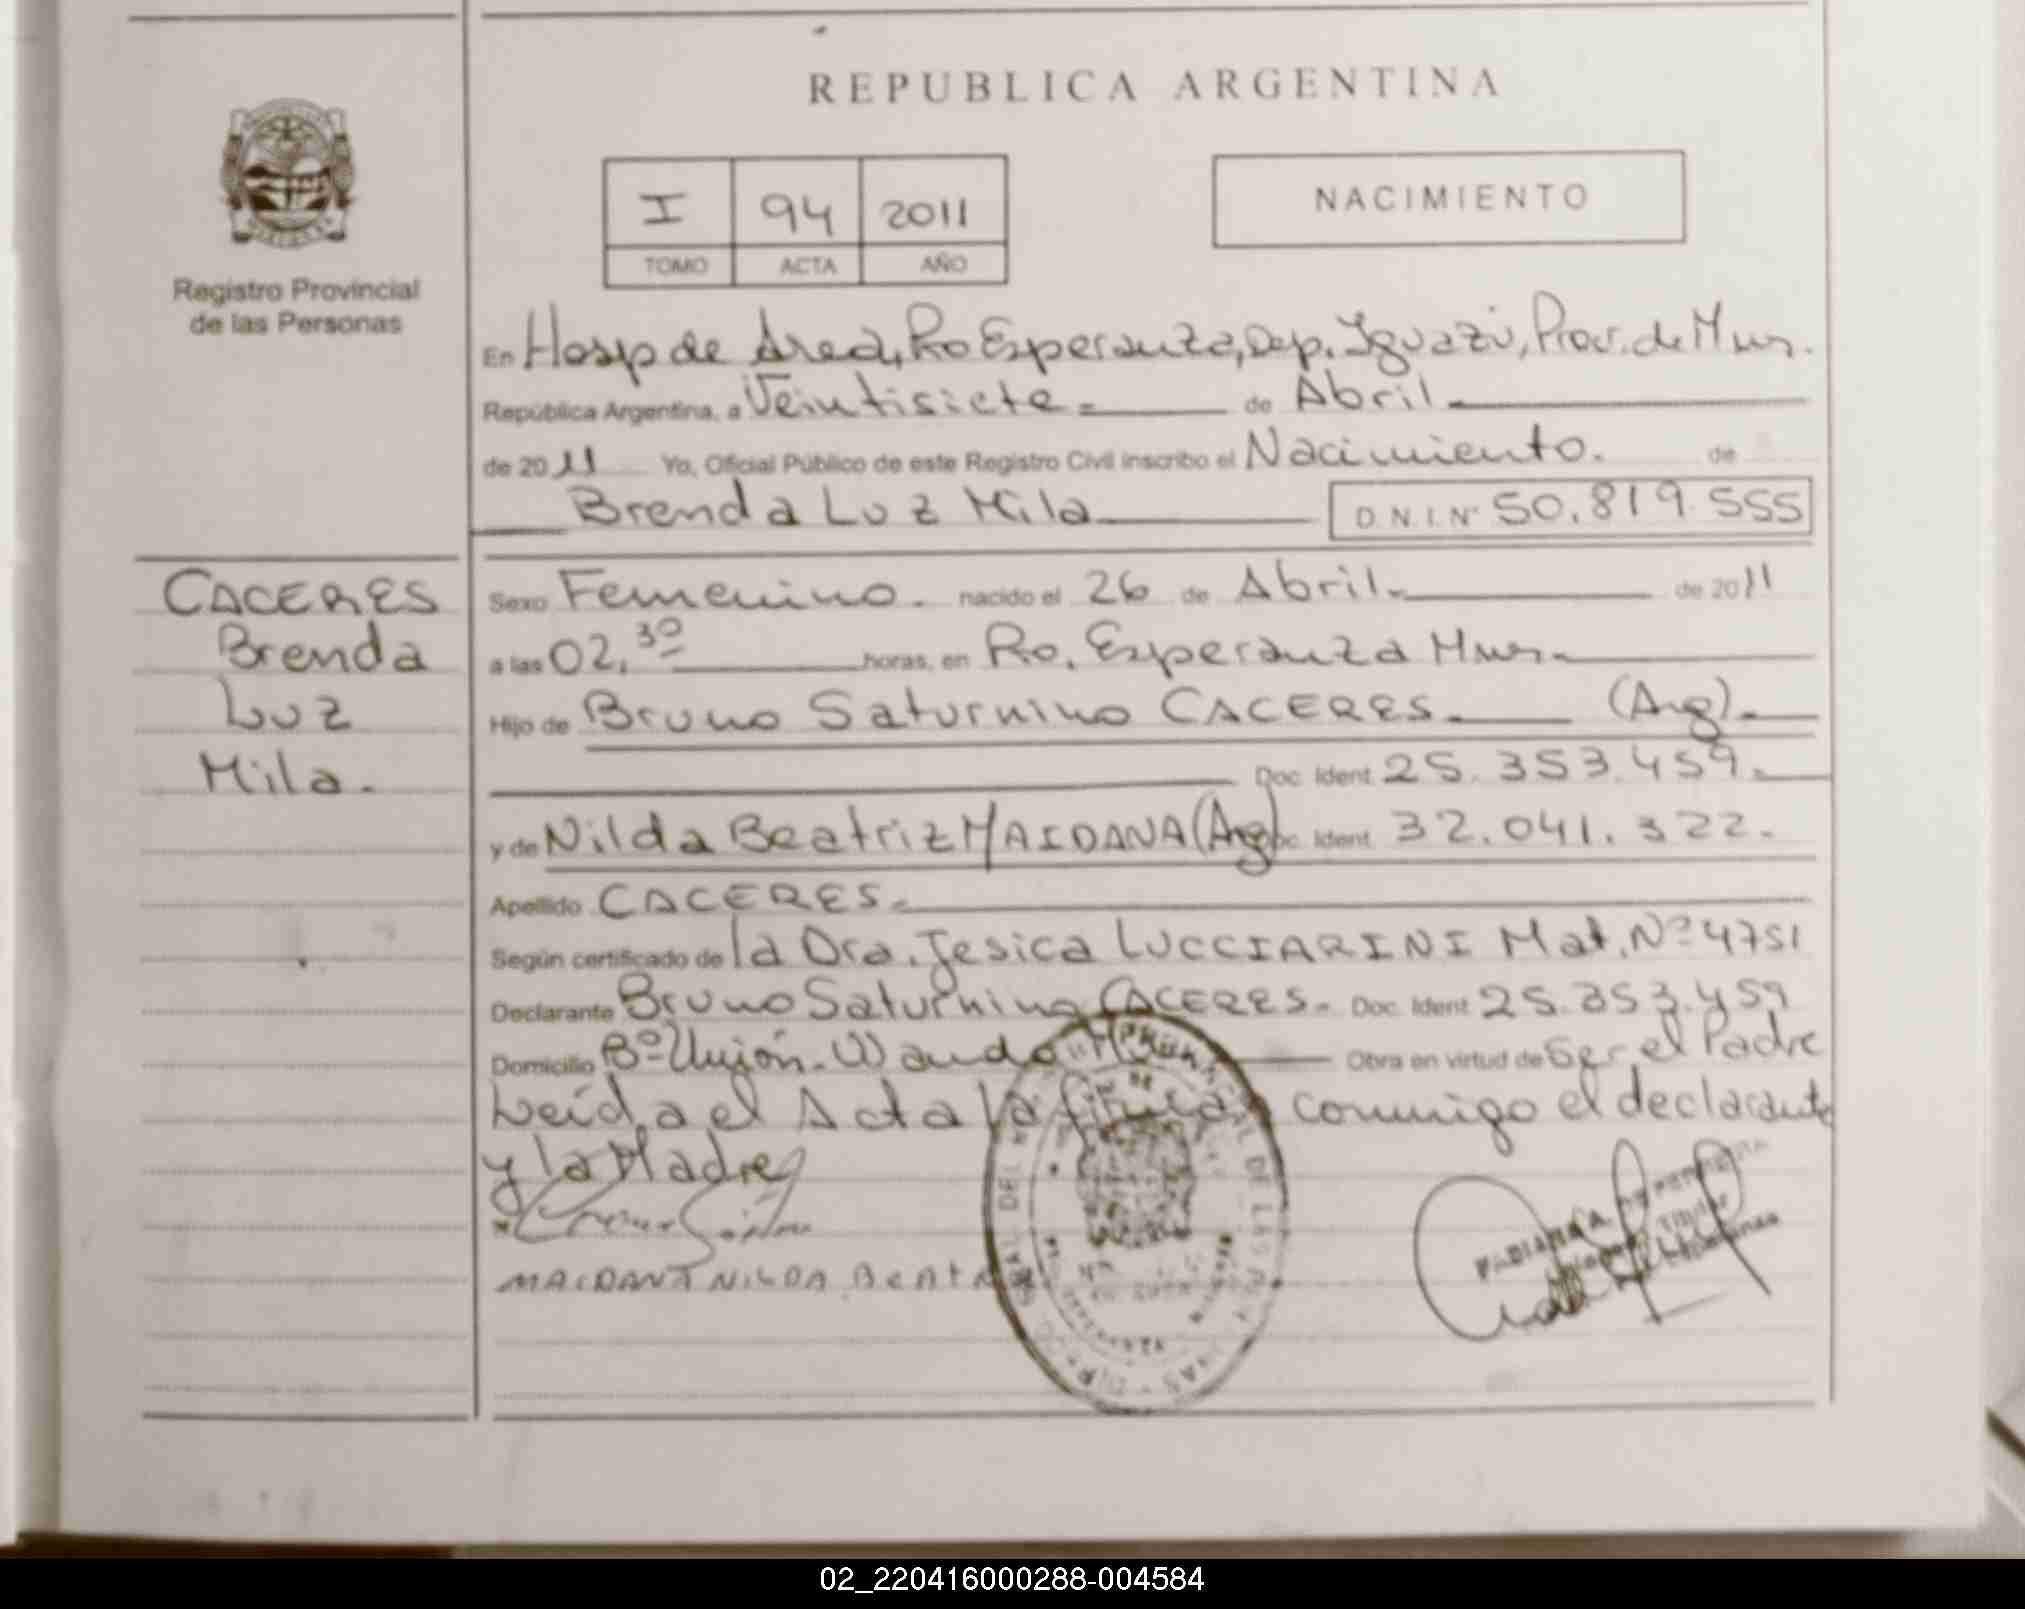 REPUBLICA ARGENTINA
I 94 2011
TOMO ACTA AÑO
NACIMIENTO
Registro Provincial
de las Personas
En Hosp de Area, Pto Esperanza, Dep. Iguazú, Prov. de Mnes.
República Argentina, a Veintisiete.- de Abril.-
de 2011 Yo, Oficial Público de este Registro Civil inscribo el Nacimiento. de
Brenda Luz Mila D.N.I.Nº 50.819.555
CACERES
Brenda
Luz
Mila.
Sexo Femenino. nacido el 26 de Abril.- de 2011
a las 02,30 horas, en Pto. Esperanza Mnes.-
Hijo de Bruno Saturnino CACERES.- (Arg).-
Doc. Ident. 25.353.459.-
y de Nilda Beatriz MAIDANA (Arg) Doc. Ident. 32.041.322.-
Apellido CACERES.-
Según certificado de la Dra. Jesica LUCCIARINI Mat. Nº 4751
Declarante Bruno Saturnino CACERES.- Doc. Ident. 25.353.459
Domicilio Bº Unión. Wanda Obra en virtud de Ser el Padre
Leída el Acta la firman conmigo el declarante
y la Madre
MAIDANA NILDA BEATRIZ
DE LAS
02_220416000288-004584